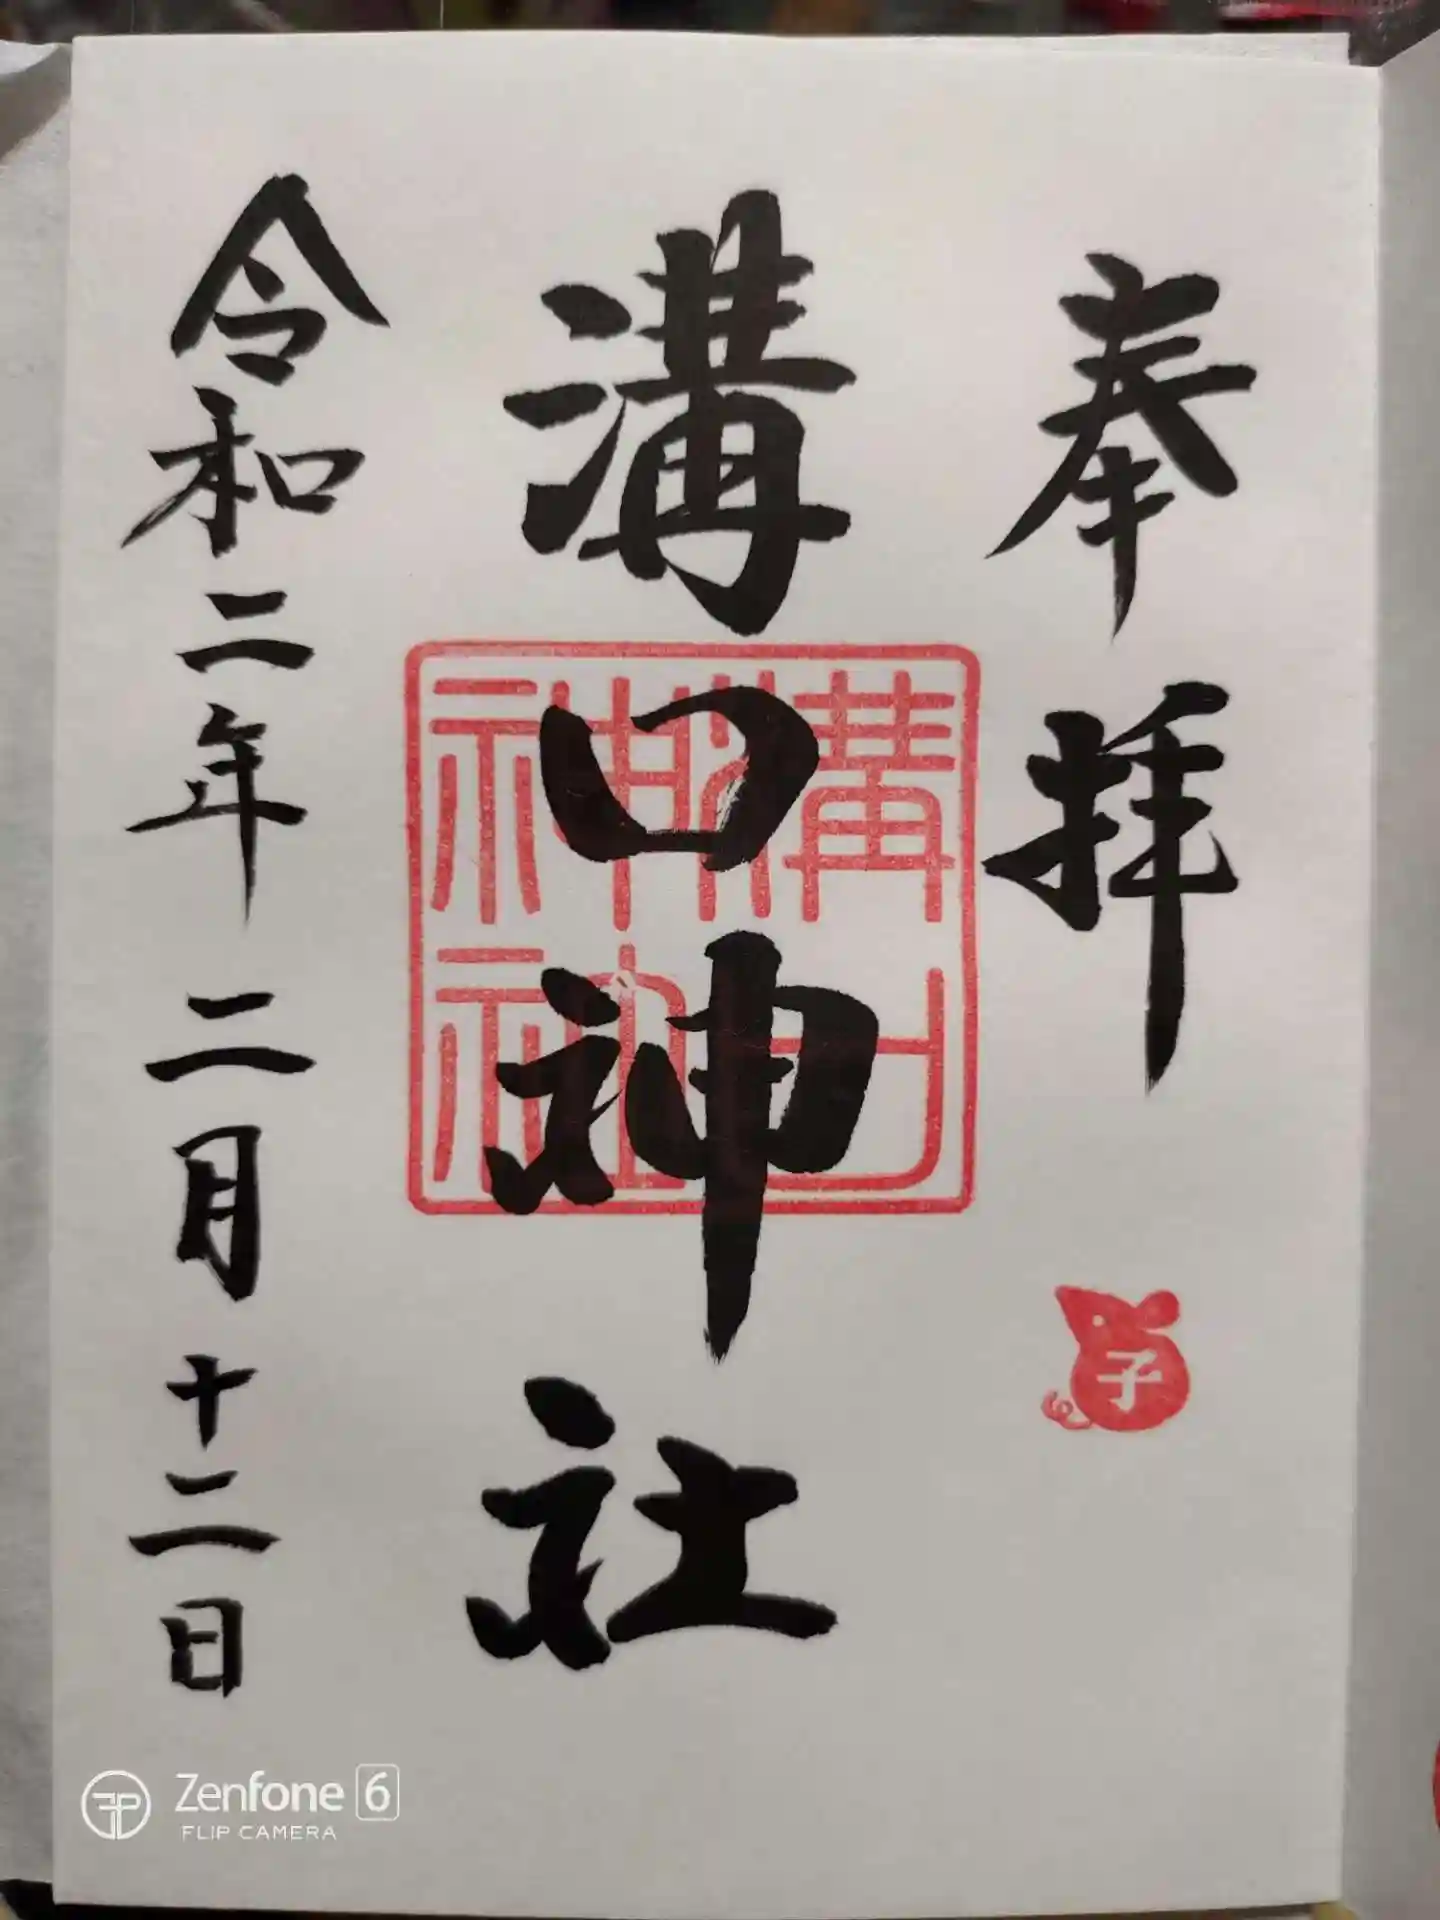 奉拝
溝口神社
溝口神社
子
令和二年 二月十二日
Zenfone 6
FLIP CAMERA